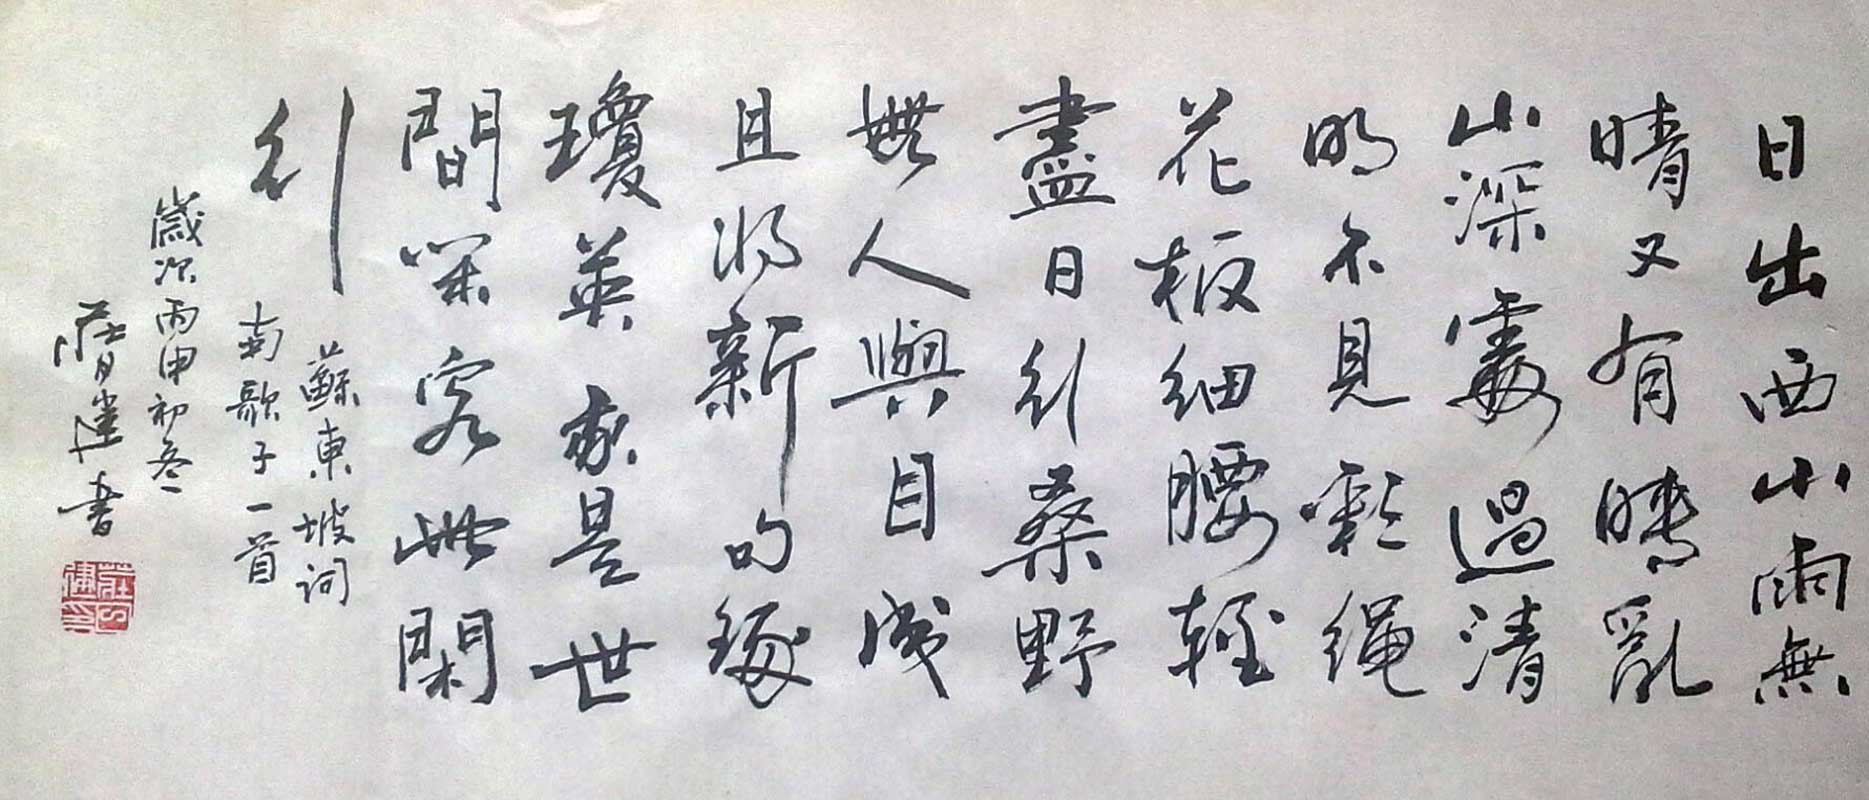 日出西山雨無
晴又有晴亂
山深處過清
明不見彩繩
花板細腰輕
盡日行桑野
無人與目成
且將新句琢
瓊英我是世
間閑客此閑
行
蘇東坡詞
南歌子一首
歲次丙申初冬
建書